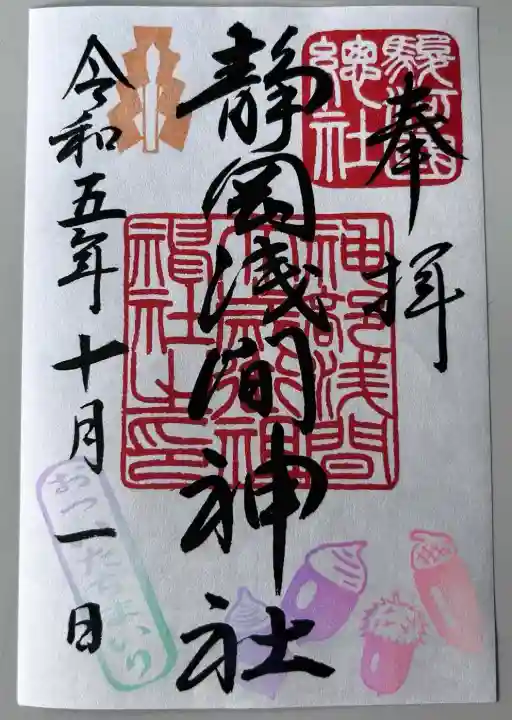 奉拝
駿河國總社
静岡浅間神社
神部浅間大歳御祖神社之印
令和五年十月一日
おついたちまいり